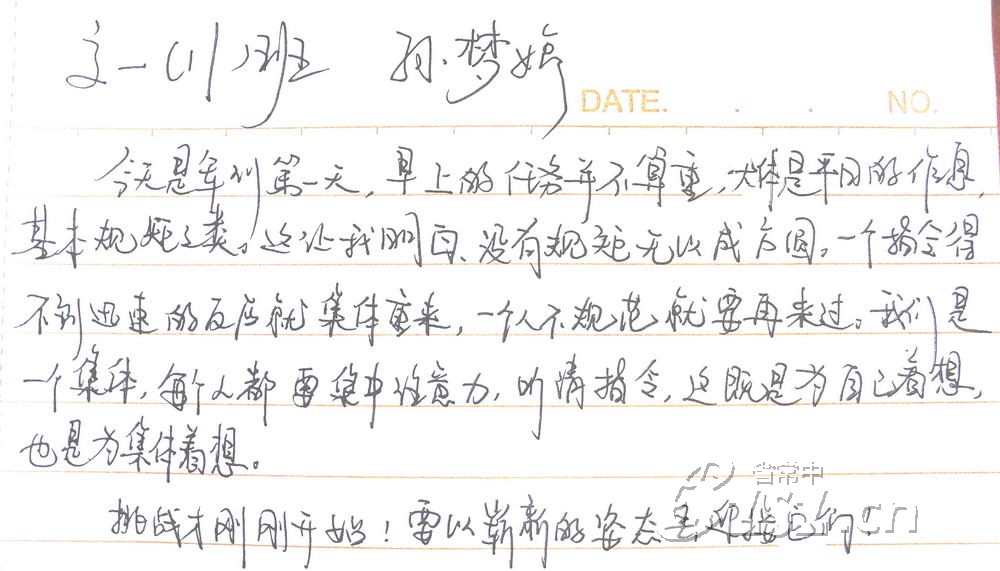 文一(1)班 孙梦婷
DATE. . . NO.
今天是军训第一天，早上的任务并不算重，大体是平日的作息，
基本规矩之类。这让我明白，没有规矩无以成方圆。一个指令得
不到迅速的反应就集体重来，一个人不规范就要再来过。我们是
一个集体，每个人都要集中注意力，听清指令，这既是为自己着想，
也是为集体着想。
挑战才刚刚开始！要以崭新的姿态去迎接它们.
省常中
.cn